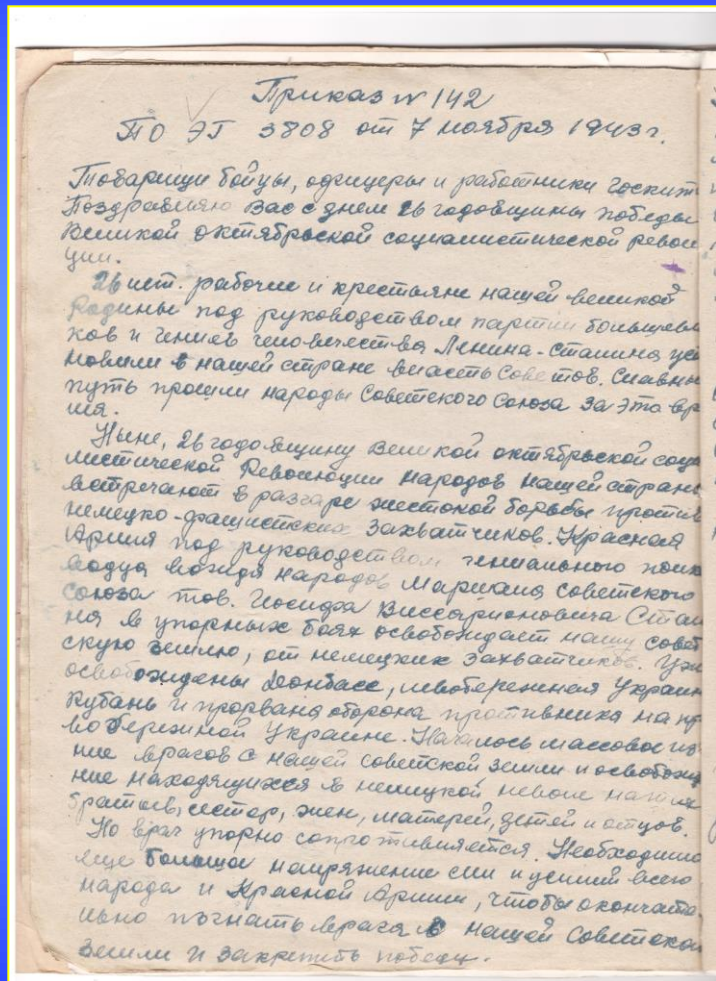 Приказ № 142
ПО ЭГ 3808 от 7 ноября 1943 г.
Товарищи бойцы, офицеры и работники госпит
Поздравляю Вас с днем 26 годовщины победы
Великой октябрьской социалистической револю
ции.
26 лет. рабочие и крестьяне нашей великой
Родины под руководством партии большеви
ков и гениев человечества Ленина-Сталина уст
новили в нашей стране власть Советов. Славны
путь прошли народы Советского Союза за это вре
мя.
Ныне, 26 годовщину Великой октябрьской соци
листической Революции народов нашей страны
встречают в разгаре жестокой борьбы против
немецко-фашистских захватчиков. Красная
Армия под руководством гениального полко
водца вождя народов Маршала Советского
Союза тов. Иосифа Виссарионовича Стали
на в упорных боях освобождает нашу совет
скую землю, от немецких захватчиков. Уже
освобождены Донбасс, левобережная Украин
Кубань и прорвана оборона противника на пр
вобережной Украине. Началось массовое из
ние врагов с нашей советской земли и освобожд
ние находящихся в немецкой неволе наших
братьев, сестер, жен, матерей, детей и отцов.
Но враг упорно сопротивляется. Необходимо
еще больша напряжение сил и усилий всего
народа и Красной Армии, чтобы окончате
льно изгнать врага с нашей Советской
земли и закрепить победу.